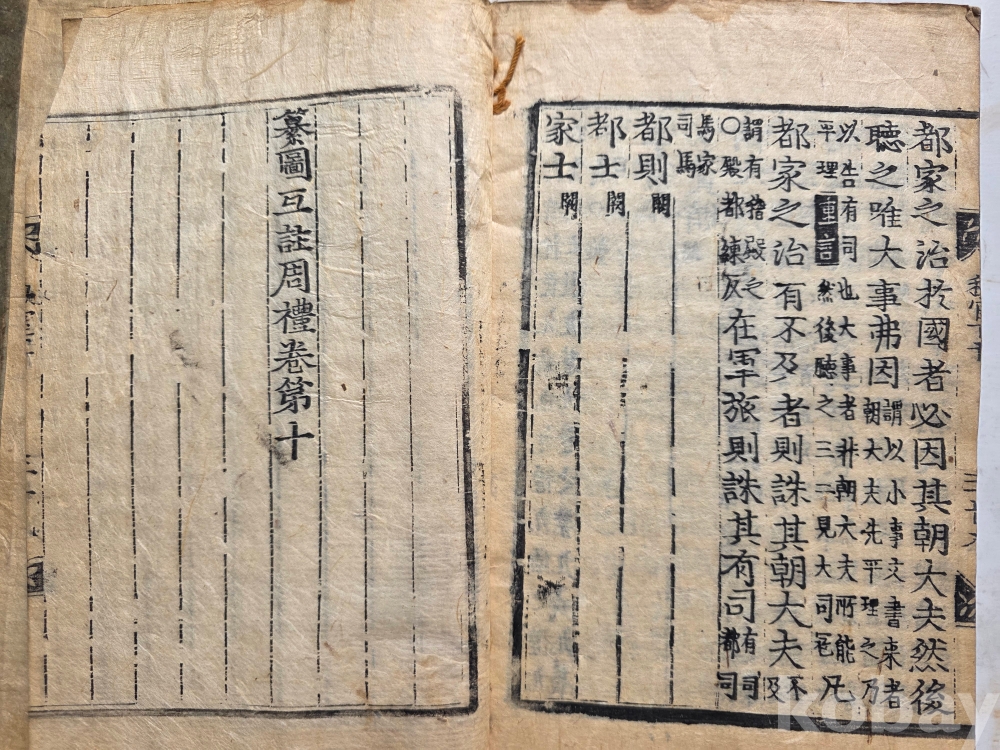 都家之治於國者必因其朝大夫然後
聽之唯大事弗因謂以小事文書來者
朝大夫先平理之乃
以告有司也大事者非朝大夫所能
平理重言然後聽之三一見大司冦凡
都家之治有不及者則誅其朝大夫不
及
謂有稽殿之
○殿都練反在軍旅則誅其有司有司
都司
馬家
司馬
都則闕
都士闕
家士闕
纂圖互註周禮卷第十
kobay